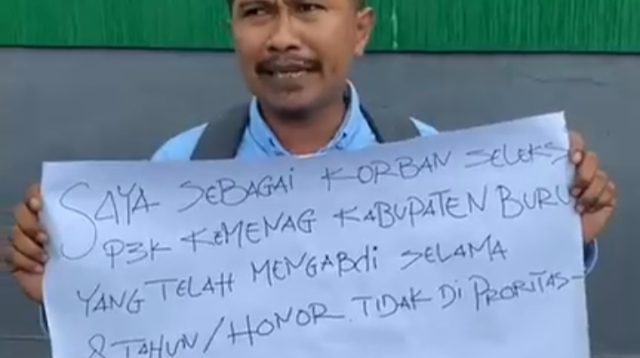 SAYA SEBAGAI KORBAN SELEKSI
P3K KEMENAG KABUPATEN BURU
YANG TELAH MENGABDI SELAMA
8 TAHUN/HONOR. TIDAK DI PRORITAS-